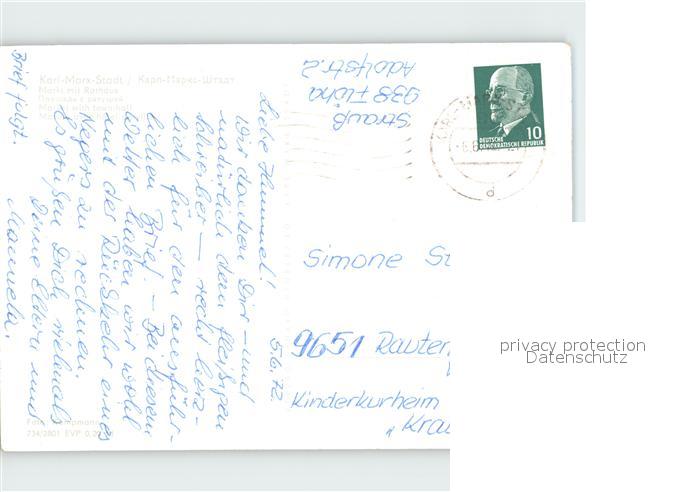 Karl-Marx-Stadt / Карл-Маркс-Штадт
Markt mit Rathaus
Площадь с ратушей
Market with townhall
Strauß
938 Flöha
Adolfstr. 2
DEUTSCHE
DEMOKRATISCHE REPUBLIK
10
5.6.72
Liebe
Wir danken Dir – und
natürlich dem fleißigen
Schreiber – recht herz-
lich für den ausführ-
lichen Brief. – Bei diesem
Wetter haben wir wohl
mit der Rückkehr eines
Negers zu rechnen.
Es grüßen Dich vielmals
Deine Eltern und
Manuela.
Brief folgt.
Simone St
9651 Rauten
Kinderkurheim
"Kra
734/2801 EVP 0,20
privacy protection
Datenschutz